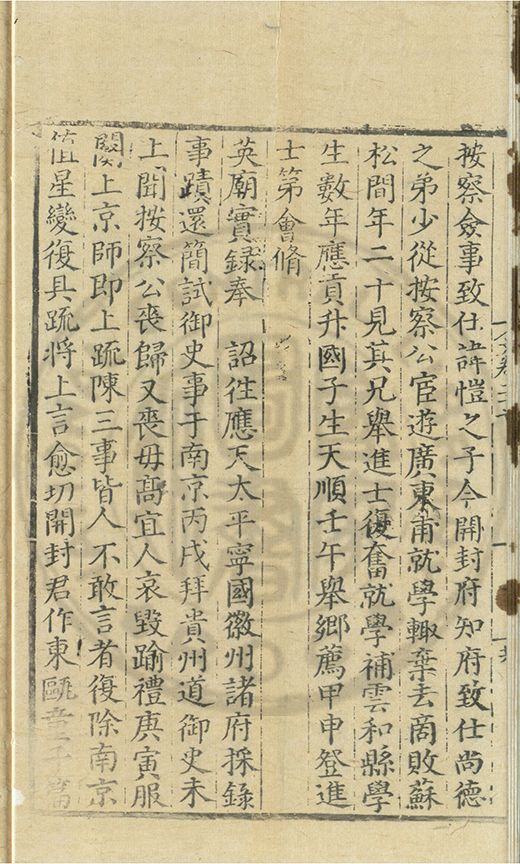 按察僉事致仕諱愷之子今開封府知府致仕尚德
之弟少從按察公宦遊廣東甫就學輙棄去商敗蘇
松間年二十見其兄舉進士復奮就學補雲和縣學
生數年應貢升國子生天順壬午舉鄉薦甲申登進
士第會脩
英廟實録奉 詔徃應天太平寧國徽州諸府採錄
事蹟還簡試御史事于南京丙戌拜貴州道御史未
上聞按察公喪歸又喪母髙宜人哀毀踰禮庚寅服
闋上京師即上疏陳三事皆人不敢言者復除南京
值星變復具疏將上言愈切開封君作東甌童子